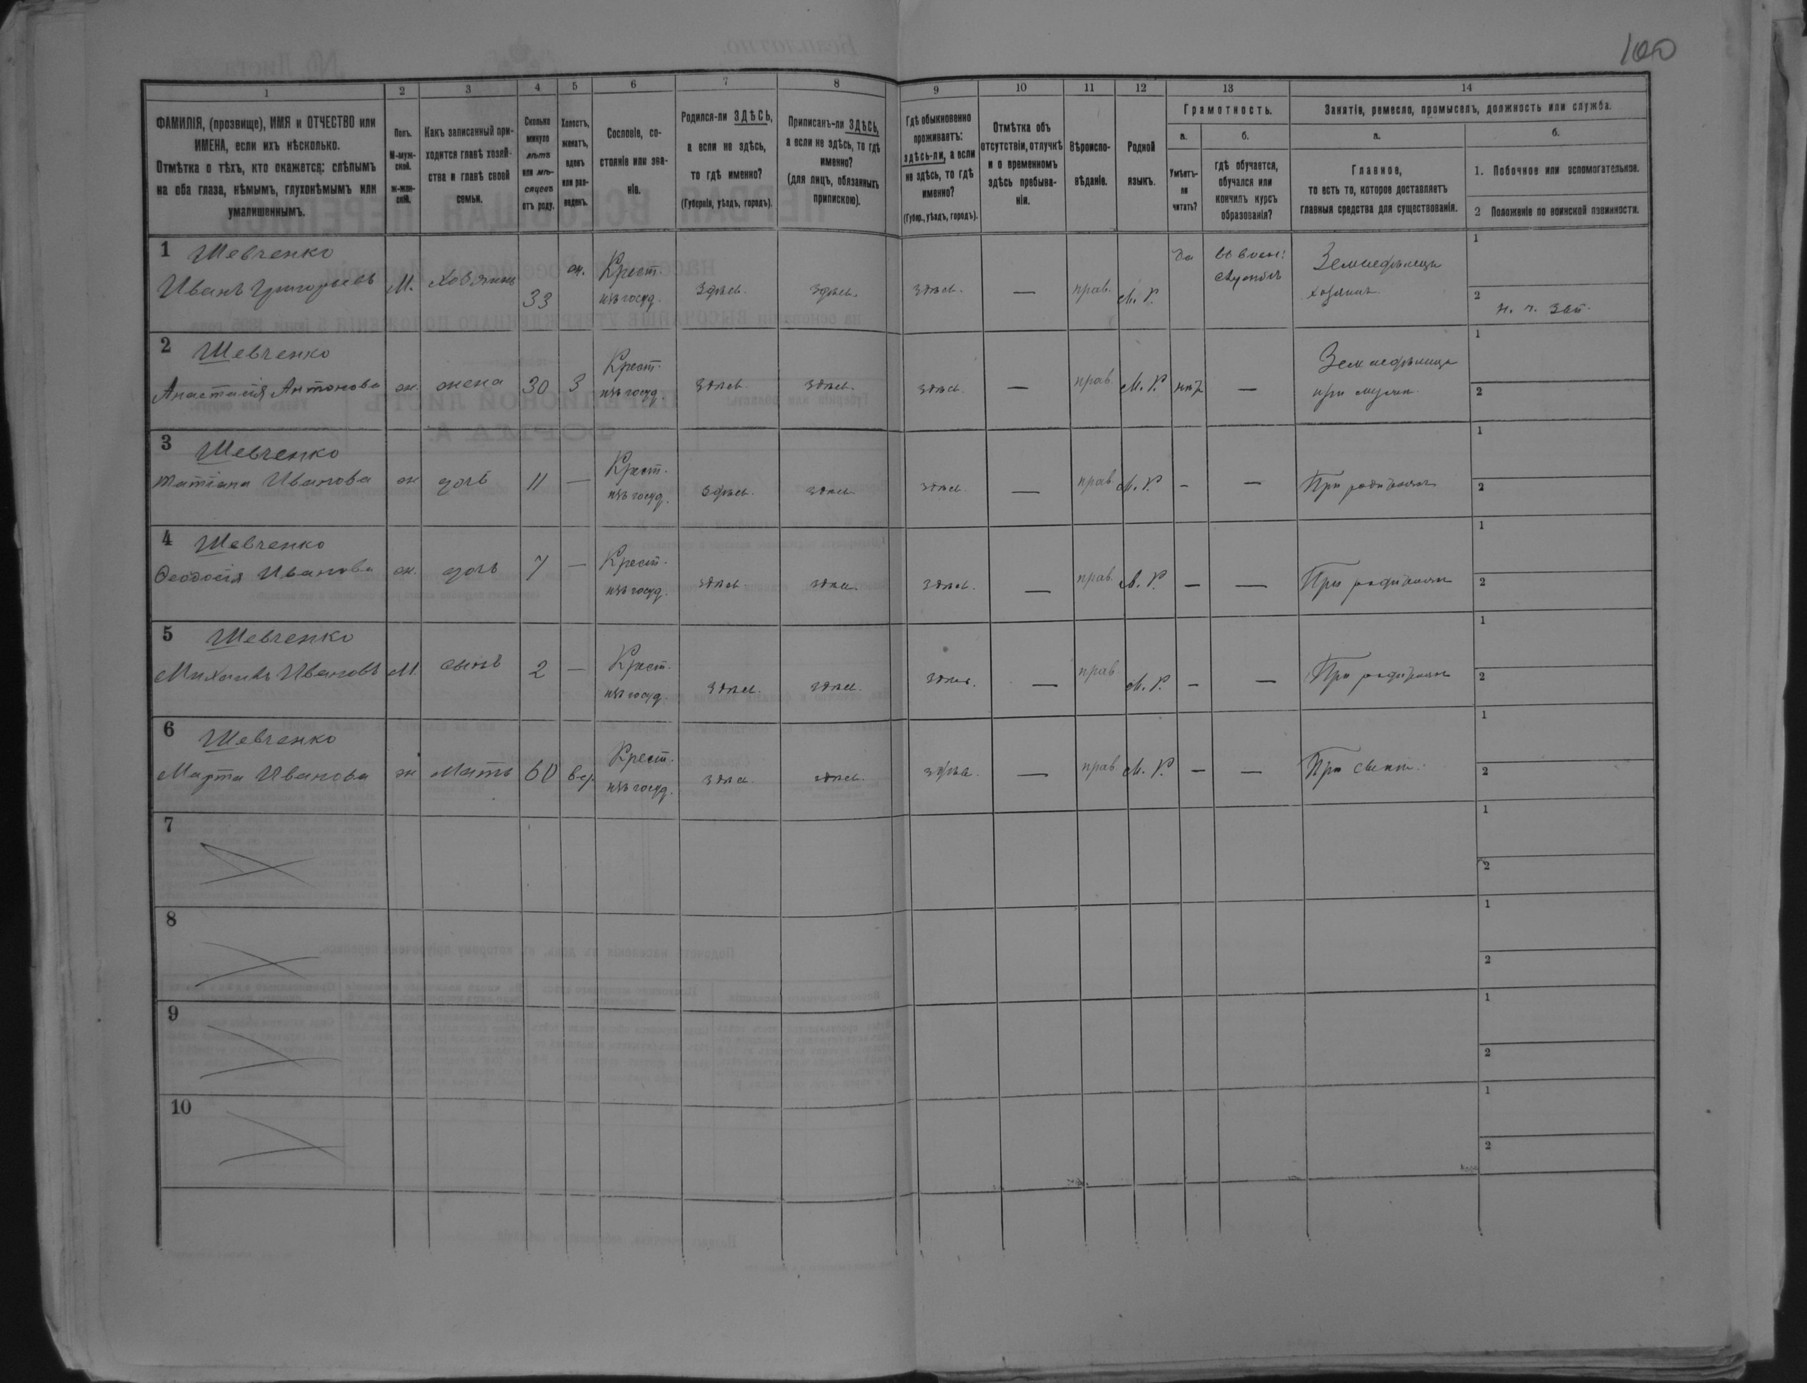 100
1 2 3 4 5 6 7 8 9 10 11 12 13 14
ФАМИЛІЯ, (прозвище), ИМЯ и ОТЧЕСТВО или
ИМЕНА, если ихъ нѣсколько.
Отмѣтка о тѣхъ, кто окажется: слѣпымъ
на оба глаза, нѣмымъ, глухонѣмымъ или
умалишеннымъ.
Полъ.
М-муж-
ской.
ж-жен-
скій.
Какъ записанный при-
ходится главѣ хозяй-
ства и главѣ своей
семьи.
Сколько
минуло
лѣтъ
или мѣ-
сяцевъ
отъ роду.
Холостъ,
женатъ,
вдовъ
или раз-
веденъ.
Сословіе, со-
стояніе или зва-
ніе.
Родился-ли ЗДѢСЬ,
а если не здѣсь,
то гдѣ именно?
(Губернія, уѣздъ, городъ).
Приписанъ-ли ЗДѢСЬ,
а если не здѣсь, то гдѣ
именно?
(для лицъ, обязанныхъ
припискою).
Гдѣ обыкновенно
проживаетъ:
здѣсь-ли, а если
не здѣсь, то гдѣ
именно?
(Губер., уѣздъ, городъ).
Отмѣтка объ
отсутствіи, отлучкѣ
и о временномъ
здѣсь пребыва-
ніи.
Вѣроиспо-
вѣданіе.
Родной
языкъ.
Грамотность.
а.
Умѣетъ-
ли
читать?
б.
гдѣ обучается,
обучался или
кончилъ курсъ
образованія?
Занятія, ремесло, промыселъ, должность или служба.
а.
Главное,
то есть то, которое доставляетъ
главныя средства для существованія.
б.
1. Побочное или вспомогательное.
2 Положеніе по воинской повинности.
1 Шевченко
Иванъ Григорьевъ М. хозяинъ 33 ж. Крест. изъ госуд. здѣсь. здѣсь. здѣсь. — прав. М. Р. да въ воен: службѣ Земледѣлецъ хозяинъ 1 2
2 Шевченко
Анастасія Антонова ж. жена 30 З Крест. изъ госуд. здѣсь здѣсь. здѣсь — прав М. Р. нѣт — Земледѣлица при мужѣ 1 2
3 Шевченко
Татіана Иванова ж дочь 11 — Крест. изъ госуд. здѣсь. здѣсь здѣсь. — прав. М. Р. - — При родителяхъ 1 2
4 Шевченко
Феодосія Иванова ж. дочь 7 — Крест. изъ госуд. здѣсь здѣсь здѣсь. — прав. М. Р. — — При родителяхъ 1 2
5 Шевченко
Михаилъ Ивановъ М. сынъ 2 — Крест. изъ госуд. здѣсь. здѣсь. здѣсь. — прав М. Р. - — При родителяхъ 1 2
6 Шевченко
Марта Иванова ж мать 60 вд. Крест. изъ госуд. здѣсь здѣсь. здѣсь. — прав М. Р. — — При сынѣ. 1 2
7 1 2
8 1 2
9 1 2
10 1 2